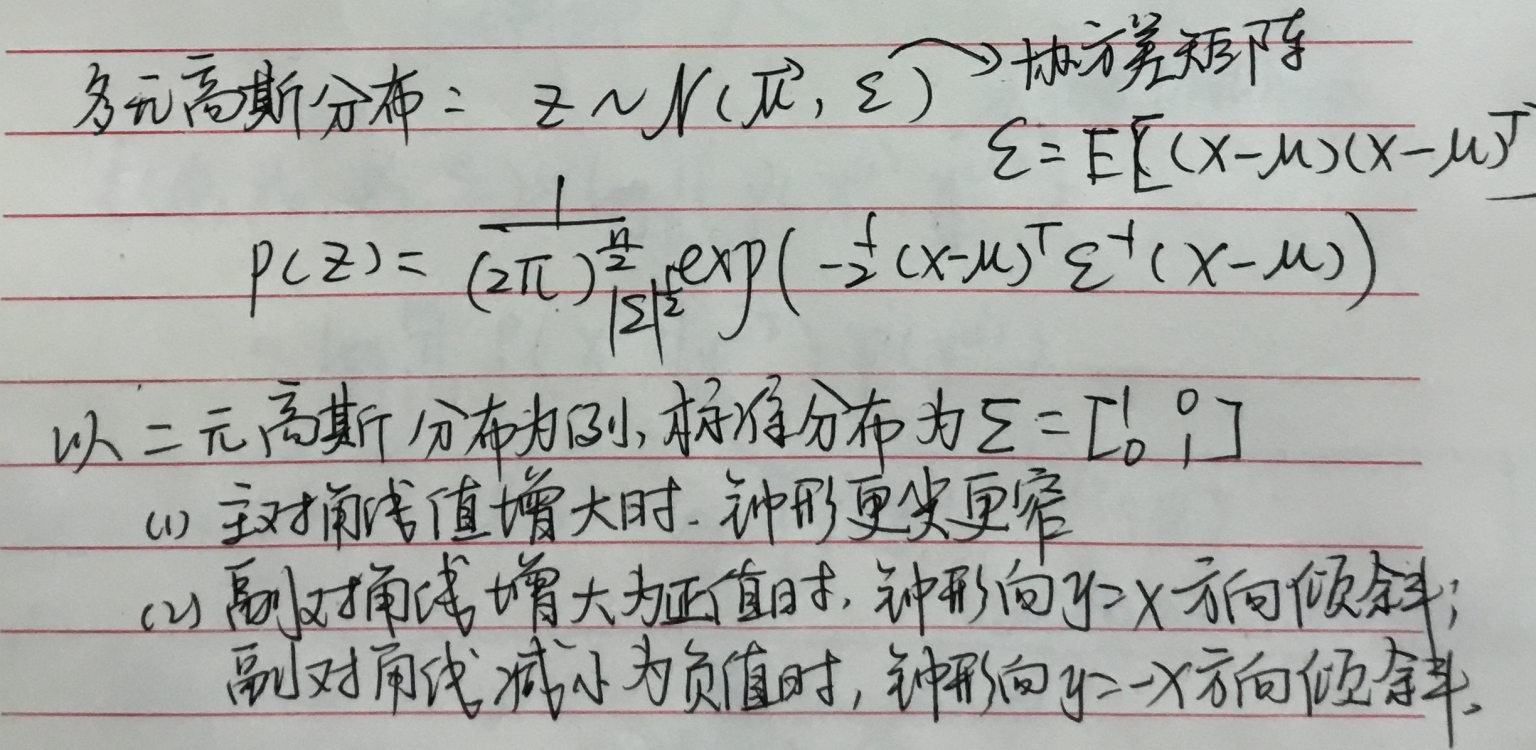 多元高斯分布: z ~ N(μ⃗, Σ) → 协方差矩阵
Σ = E[(x-μ)(x-μ)^T
p(z) = 1/((2π)^(n/2) |Σ|^(1/2)) exp(-1/2 (x-μ)^T Σ^-1 (x-μ))
以二元高斯分布为例,标准分布为 Σ = [1 0; 0 1]
(1) 主对角线值增大时. 钟形更尖更窄
(2) 副对角线增大为正值时, 钟形向y=x方向倾斜;
副对角线减小为负值时, 钟形向y=-x方向倾斜.